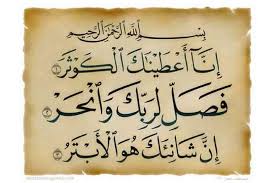 بِسْمِ اللَّهِ الرَّحْمَٰنِ الرَّحِيمِ
إِنَّا أَعْطَيْنَاكَ الْكَوْثَرَ ١
فَصَلِّ لِرَبِّكَ وَانْحَرْ ٢
إِنَّ شَانِئَكَ هُوَ الْأَبْتَرُ ٣